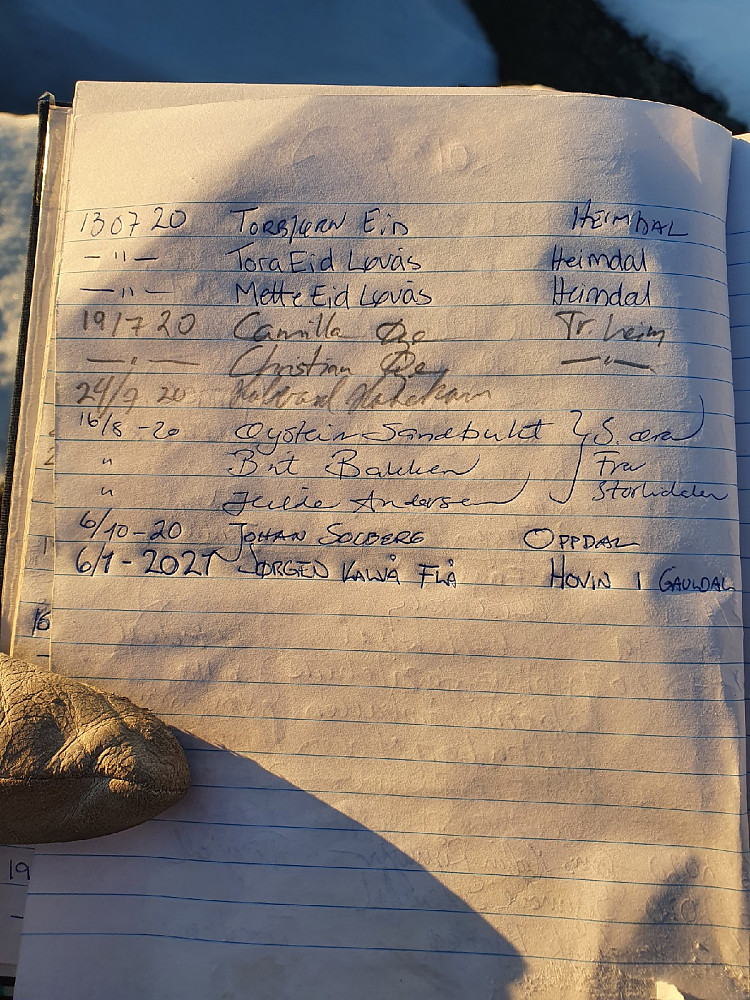 13 07 20 TORBJØRN EID HEIMDAL
— " — Tora Eid Løvås Heimdal
— " — Mette Eid Løvås Heimdal
19/7 20 Camilla Øie Tr.heim
— " — Christian Øie — " —
20
16/8 -20 Øystein Sandbukt } S. øra
" Brit Bakken Fra
" Andersen Storlidalen
6/10-20 JOHAN SOLBERG OPPDAL
6/1-2021 JØRGEN KALVÅ FLÅ HOVIN I GAULDAL
16
19